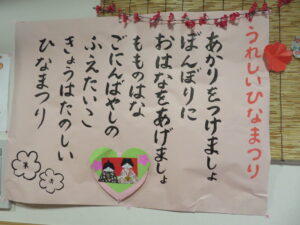 うれしいひなまつり
あかりをつけましょ
ぼんぼりに
おはなをあげましょ
もものはな
ごにんばやしの
ふえたいこ
きょうはたのしい
ひなまつり